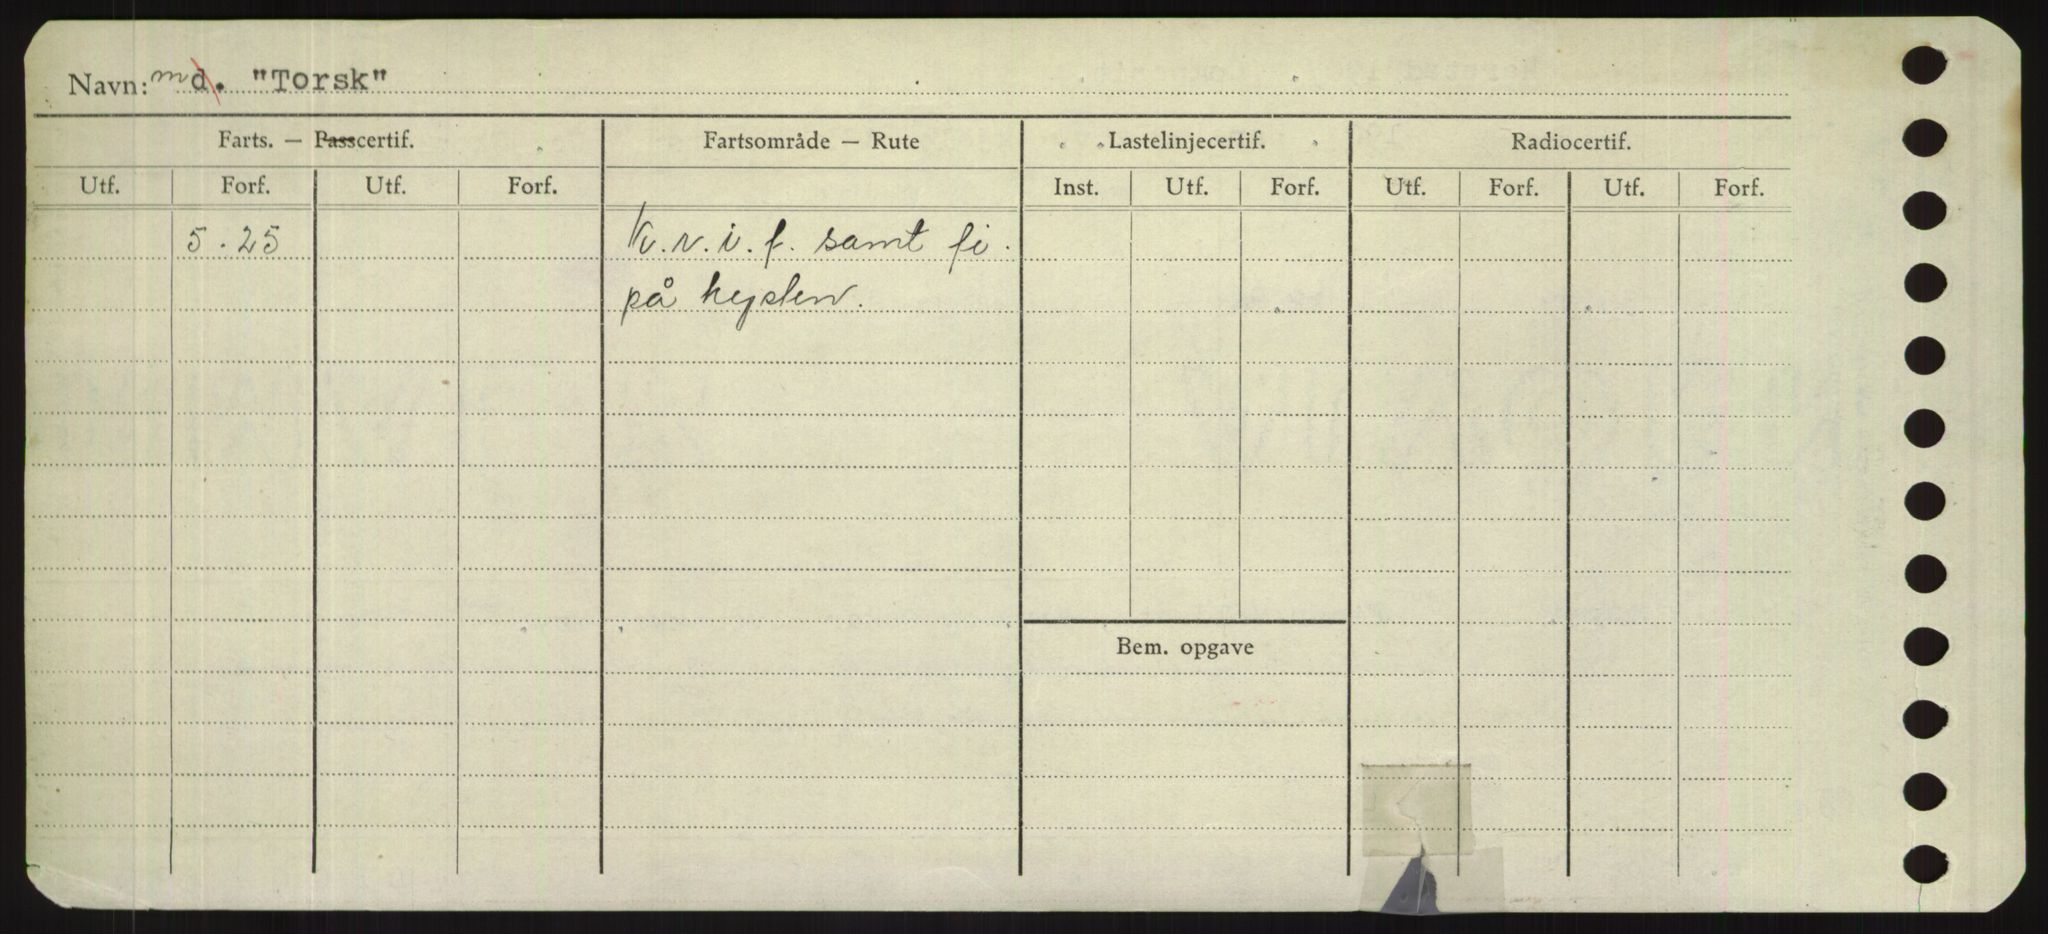 Navn: md. "Torsk"
Farts. — Passcertif. Fartsområde — Rute Lastelinjecertif. Radiocertif.
Utf. Forf. Utf. Forf. Inst. Utf. Forf. Utf. Forf. Utf. Forf.
5.25 K.v.i.f. samt fi.
på kysten.
Bem. opgave